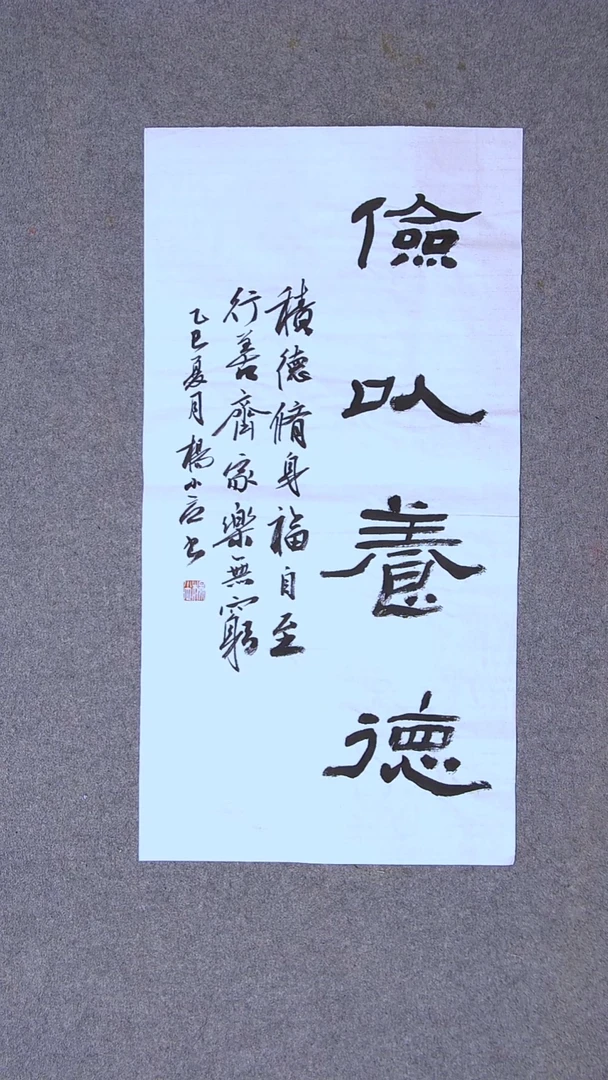 儉以養德
積德脩身福自至
行善齊家樂無窮
乙巳夏月楊小京書